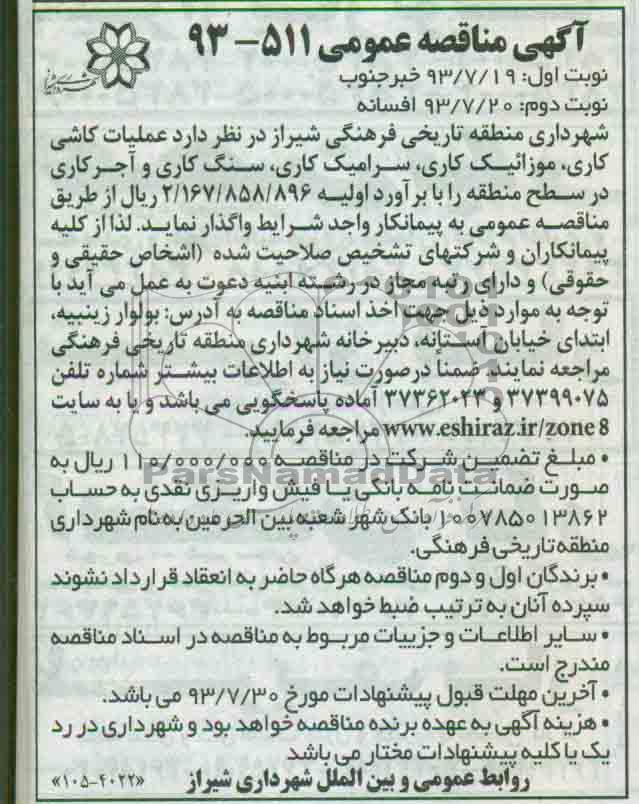 آگهی مناقصه عمومی ۵۱۱-۹۳
نوبت اول: ۹۳/۷/۱۹ خبرجنوب
نوبت دوم: ۹۳/۷/۲۰ افسانه
شهرداری منطقه تاریخی فرهنگی شیراز در نظر دارد عملیات کاشی
کاری، موزائیک کاری، سرامیک کاری، سنگ کاری و آجرکاری
در سطح منطقه را با برآورد اولیه ۲/۱۶۷/۸۵۸/۸۹۶ ریال از طریق
مناقصه عمومی به پیمانکار واجد شرایط واگذار نماید. لذا از کلیه
پیمانکاران و شرکتهای تشخیص صلاحیت شده (اشخاص حقیقی و
حقوقی) و دارای رتبه مجاز در رشته ابنیه دعوت به عمل می آید با
توجه به موارد ذیل جهت اخذ اسناد مناقصه به آدرس: بولوار زینبیه،
ابتدای خیابان آستانه، دبیرخانه شهرداری منطقه تاریخی فرهنگی
مراجعه نمایند. ضمنا درصورت نیاز به اطلاعات بیشتر شماره تلفن
۳۷۳۹۹۰۷۵ و ۳۷۳۶۲۰۲۳ آماده پاسخگویی می باشد و یا به سایت
www.eshiraz.ir/zone8 مراجعه فرمایید.
• مبلغ تضمین شرکت در مناقصه ۱۱۰/۰۰۰/۰۰۰ ریال به
صورت ضمانت نامه بانکی یا فیش واریزی نقدی به حساب
۱۰۰۷۸۵۰۱۳۸۶۲ بانک شهر شعبه بین الحرمین به نام شهرداری
منطقه تاریخی فرهنگی.
• برندگان اول و دوم مناقصه هرگاه حاضر به انعقاد قرارداد نشوند
سپرده آنان به ترتیب ضبط خواهد شد.
• سایر اطلاعات و جزییات مربوط به مناقصه در اسناد مناقصه
مندرج است.
• آخرین مهلت قبول پیشنهادات مورخ ۹۳/۷/۳۰ می باشد.
• هزینه آگهی به عهده برنده مناقصه خواهد بود و شهرداری در رد
یک یا کلیه پیشنهادات مختار می باشد
روابط عمومی و بین الملل شهرداری شیراز «۱۰۵-۴۰۲۲»
ParsNamadData